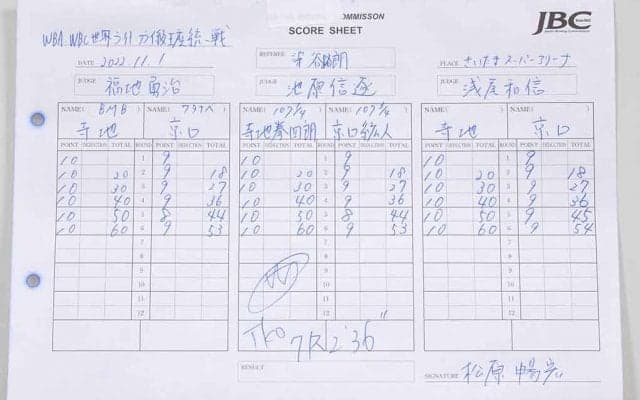 COMMISSON
SCORE SHEET
JBC
WBA・WBC世界ライト・フライ級王座統一戦
DATE 2022.11.1
REFEREE
PLACE さいたまスーパーアリーナ
JUDGE 福地勇治
JUDGE 池原信遂
JUDGE 浅尾和信
NAME( BMB ) NAME( ワタナベ ) NAME( 107 1/4 ) NAME( 107 3/4 ) NAME( ) NAME( )
寺地 京口 寺地拳四朗 京口紘人 寺地 京口
POINT DEDUCTION TOTAL ROUND POINT DEDUCTION TOTAL POINT DEDUCTION TOTAL ROUND POINT DEDUCTION TOTAL POINT DEDUCTION TOTAL ROUND POINT DEDUCTION TOTAL
10 1 9 10 1 9 10 1 9
10 20 2 9 18 10 20 2 9 18 10 20 2 9 18
10 30 3 9 27 10 30 3 9 27 10 30 3 9 27
10 40 4 9 36 10 40 4 9 36 10 40 4 9 36
10 50 5 8 44 10 50 5 8 44 10 50 5 9 45
10 60 6 9 53 10 60 6 9 53 10 60 6 9 54
7 7 7
8 8 8
9 9 9
10 10 10
11 11 11
12 12 12
TKO 7R 2'36"
RESULT
SIGNATURE 松原暢宏